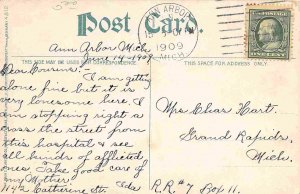 Post Card.
ANN ARBOR
1909
MICH.
THIS SIDE MAY BE USED FOR CORRESPONDENCE.
THIS SPACE FOR ADDRESS ONLY.
Ann Arbor Mich
June 14-1909
Dear Cousins: I am getting
along fine but it is
very lonesome here. I
am stopping right a
cross the street from
this hospital & see
all kinds of afflicted
ones. Take good care of
my Mother!
1142 Catherine St. Ida
Mrs Char Hart.
Grand Rapids,
Mich.
R.R. #7 Box 11.